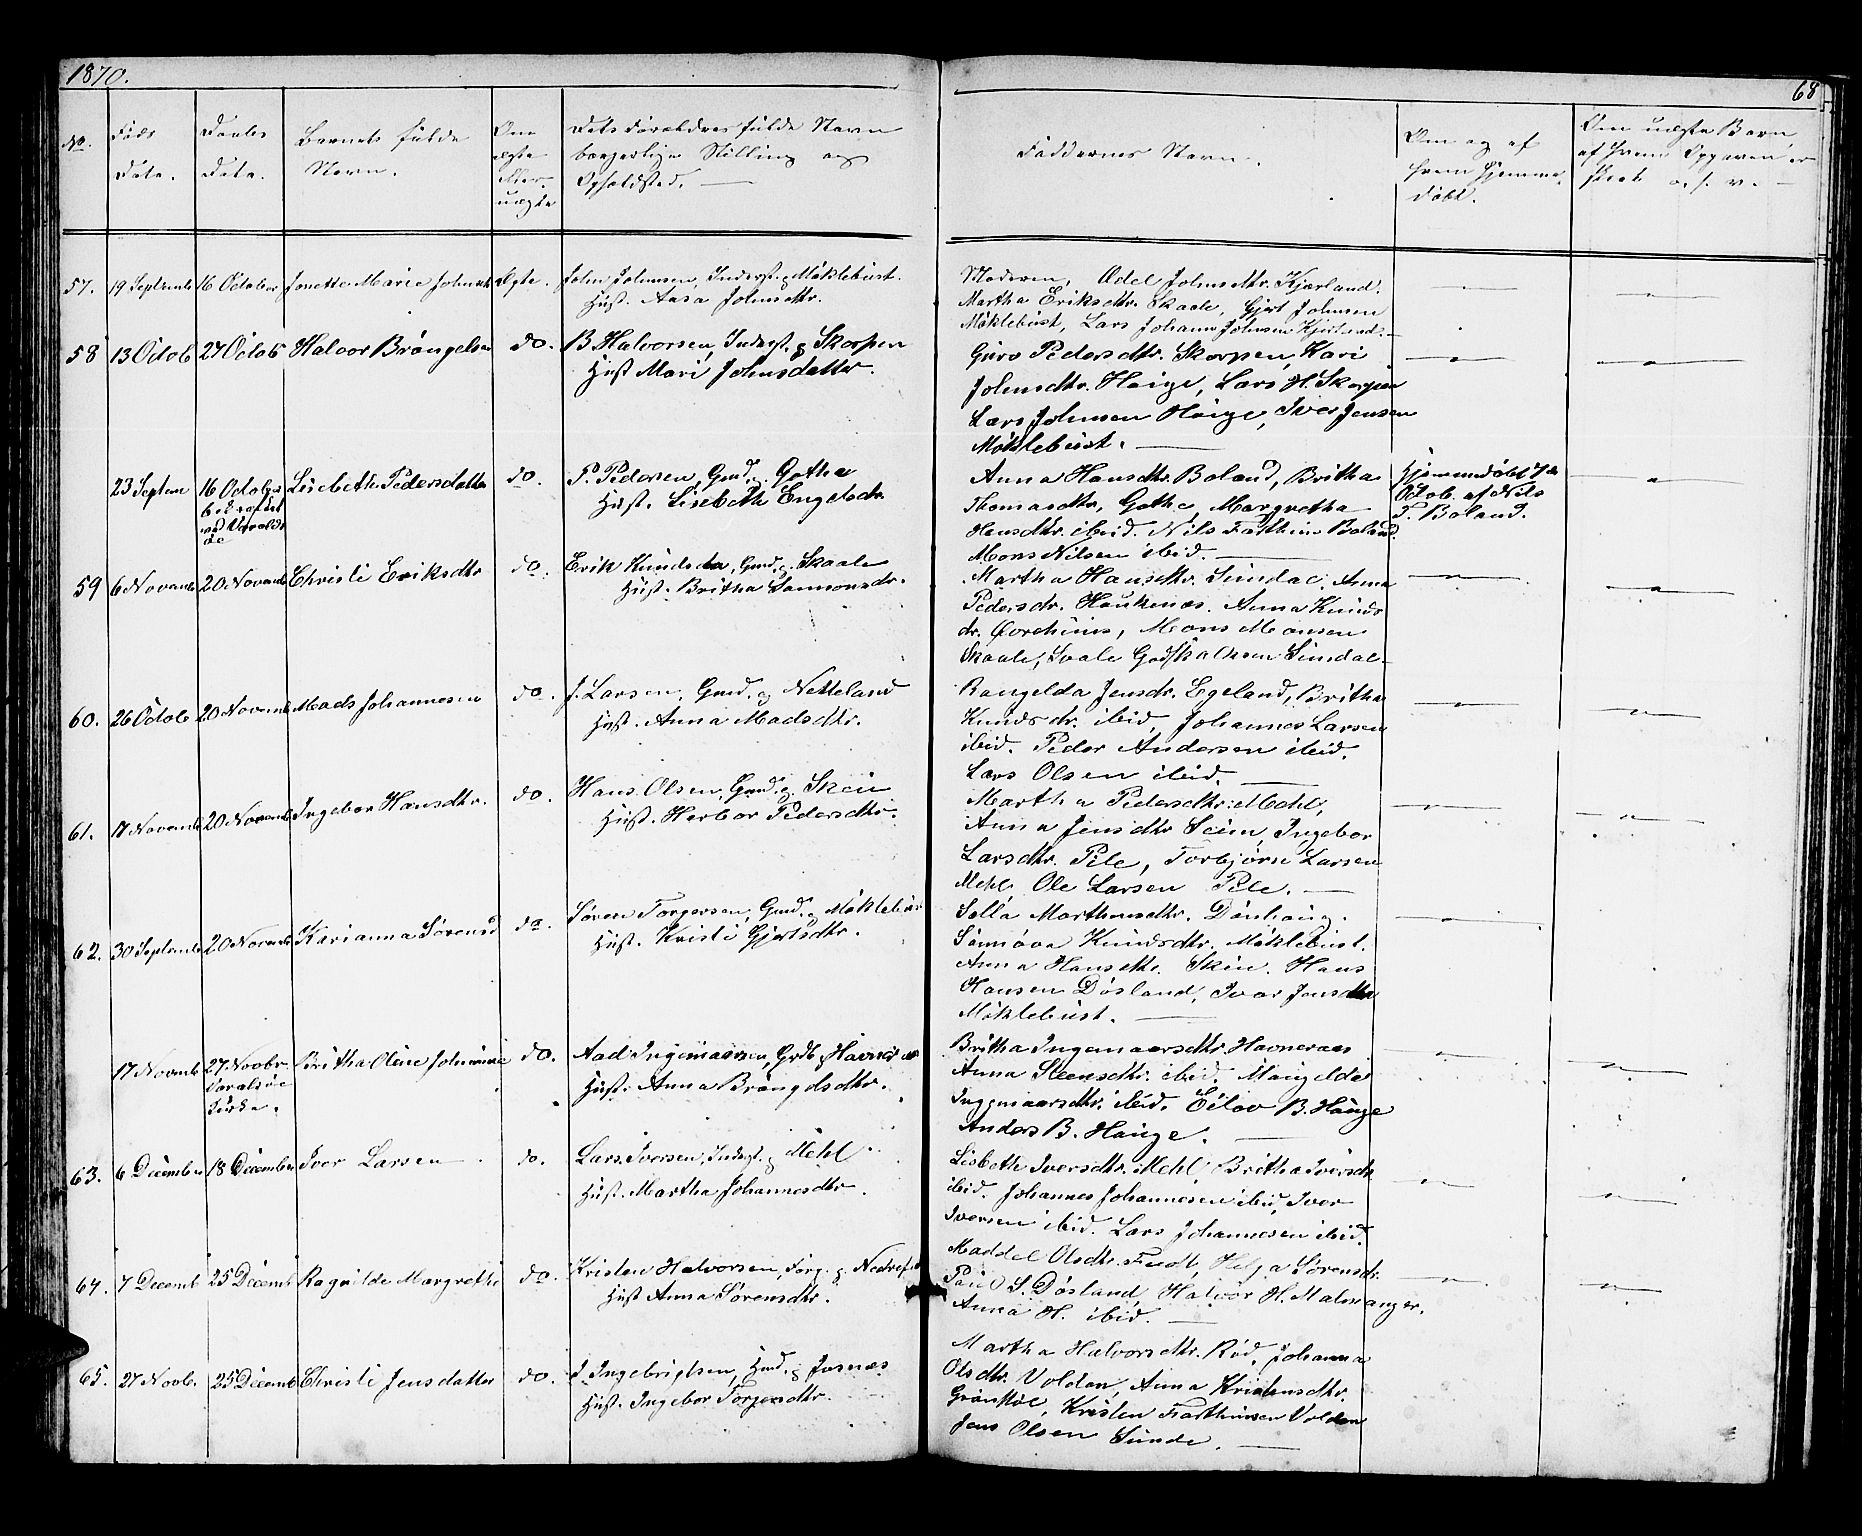 1870.
68
No.
Föds
Data.
Daabs
Data.
Barnets fulde
Navn.
Om
ægte
eller
uægte
Dets Forældres fulde Navn
borgerlige Stilling og
Opholdsted.
Faddernes Navn.
Om og af
hvem hjemme
døbt.
Om uægte Barn,
af hvem Opgaven er
skeet o. s. v.
57. 19 Septemb 16 October Jonette Marie Johnsd Ægte. John Johnsen, Inderst. Möklebust.
Hust. Aasa Johnsdtr.
Moderen, Ødel Johnsdtr. Kjærland.
Martha Eriksdtr. Skaale, Gjert Johnsen
Möklebust, Lars Johannes Johnsen Kjerland.
58 13 Octob 27 Octob Halvor Brôngelsen do. B. Halvorsen, Inderst. g Skorpen
Hust Mari Johnsdatter.
Guro Pedersdtr. Skorpen, Kari
Johnsdtr. Hauge, Lars H. Skorpen
Lars Johnsen Hauge, Iver Jensen
Möklebust.
23 Septem 16 October Lisebeth Pedersdatter do. P. Pedersen, Gmd. g. Gothe
Hust. Lisebeth Engelsdr.
Anna Hansdtr. Boland, Britha
Thomasdtr, Gothe, Margretha
Hansdtr. ibid. Nils Farthin Boland
Mons Nilsen ibid.
Hjemmedöbt
Octob. af Nils
F. Boland.
59 6 Novemb 20 Novemb Christi Eriksdtr do. Erik Knudsen, Gmd. g. Skaale
Hust. Britha Samsonsdr.
Martha Hansdtr. Sundal, Anna
Pedersdr. Haukenæs. Anna Knuds
dr. Mons Monsen
Skaale, Godskalksen Sundal
60. 26 Octob 20 Novemb Mads Johannesen do. J. Larsen, Gmd. g Netteland
Hust. Anna Madsdtr.
Rangelda Jensdr. Egeland, Britha
Knudsdr. ibid, Johannes Larsen
ibid. Peder Andersen ibid.
Lars Olsen ibid.
61. 17 Novemb 20 Novemb Ingebor Hansdtr. do. Hans Olsen, Gmd. g Skeie
Hust. Herbor Pedersdtr.
Martha Pedersdtr. Mehl,
Anna Jensdtr Seim, Ingebor
Larsdtr. Pile, Torbjörn Larsen
Mehl Ole Larsen Pile.
62. 30 Septemb 20 Novemb Karianna Sörensd do. Sören Torgersen, Gmd. g Möklebus
Hust. Kristi Gjertsdtr.
Sella Marthinsdtr.
Sönnöva Knudsdtr. Möklebust.
Anna Hansdtr. Skeie. Hans
Hansen Dösland, Ivar Jensen
Möklebust.
17 Novemb 27 Novbr
Varalsöe
Kirke.
Britha Oline Johannie do. Aad Ingemaarsen, Grdb. g Havneraas
Hust. Anna Brôngelsdtr.
Britha Ingemaarsdtr. Havneraas
Anna Steensdtr. ibid. Mangelda
Ingemaarsdtr. ibid. Eilov B. Hauge
Anders B. Hauge.
63. 6 December 18 December Iver Larsen do. Lars Iversen, Inderst. g Mehl
Hust. Martha Johannesdtr.
Lisbeth Iversdtr. Mehl, Britha Iversdr
ibid. Johannes Johannesen ibid, Iver
Iversen ibid. Lars Johannesen ibid.
64. 7 Decemb 25 Decemb Ragnilde Margrethe do. Kristen Halvorsen, Forp. g. Nedre
Hust Anna Sörensdtr.
Maddel Olsdtr. Helga Sörensdr.
Paul S. Dösland, Halvor H. Malmanger.
Anna H. ibid.
65. 27 Novb. 25 Decemb Christi Jensdatter do. J. Ingebrigtsen, Hmd. g Jusnæs
Hust. Ingebor Torgersdtr.
Martha Halvorsdtr. Röd, Johanna
Olsdtr. Volden, Anna Kristensdtr.
Kristen Farthinsen Volden
Jens Olsen Sunde.